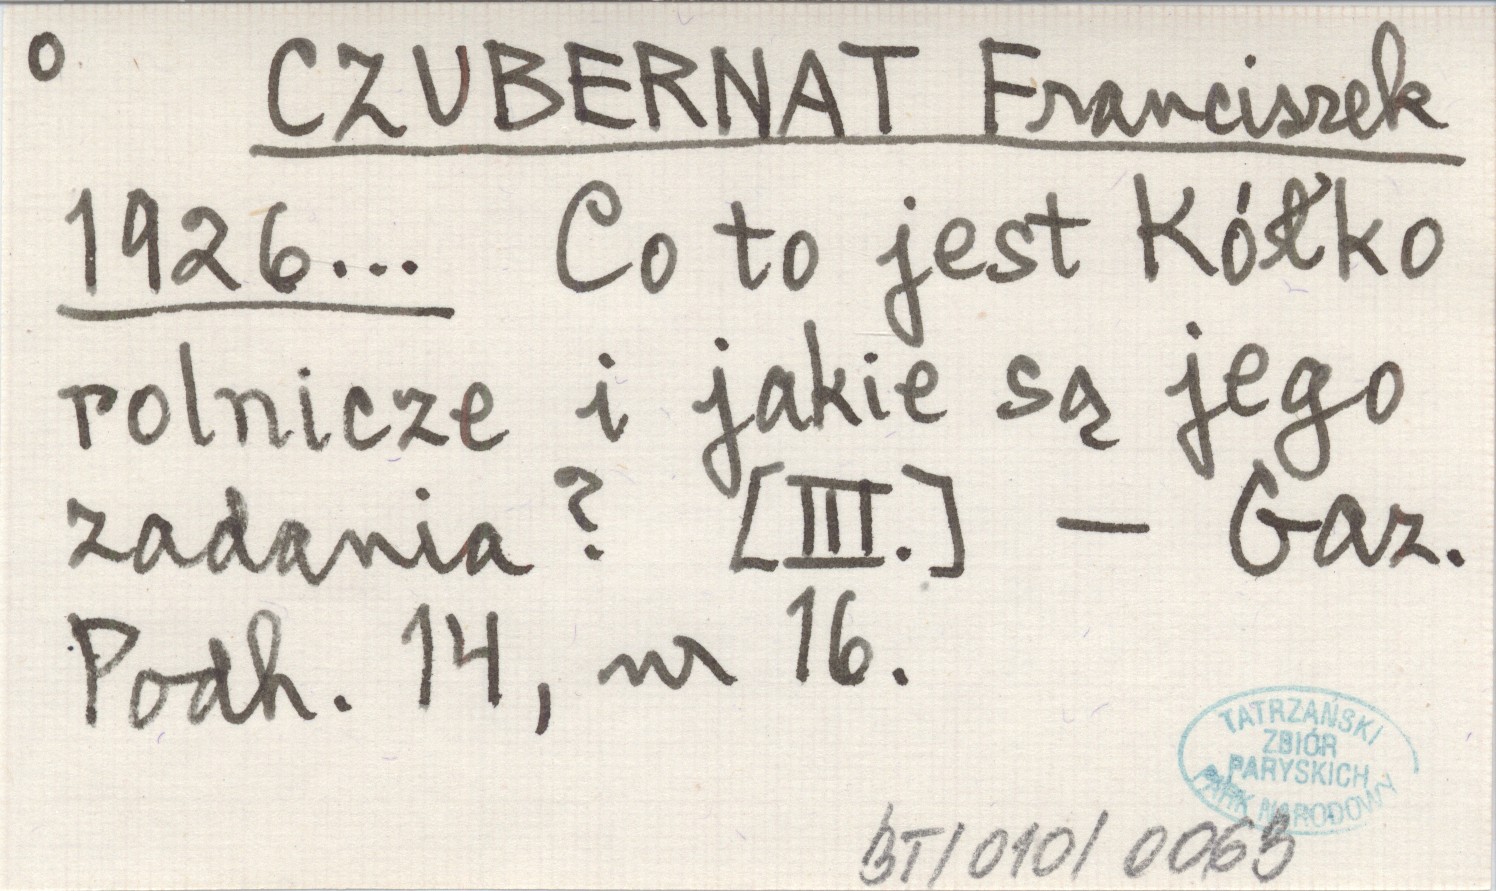 o
CZUBERNAT Franciszek
1926... Co to jest Kółko
rolnicze i jakie są jego
zadania? [III.] — Gaz.
Podh. 14, nr 16.
TATRZAŃSKI
ZBIÓR
PARYSKICH
PARK NARODOWY
BT/010/0063